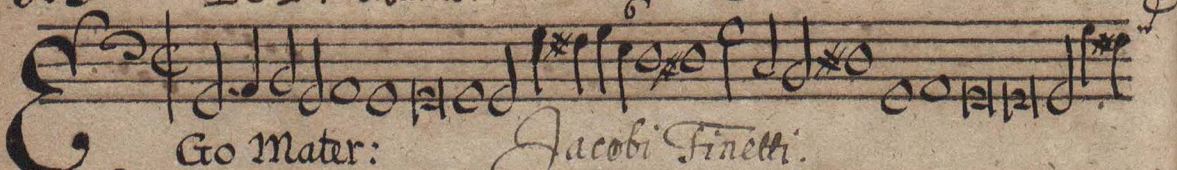 6
EGo Mater: Jacobi Finetti.